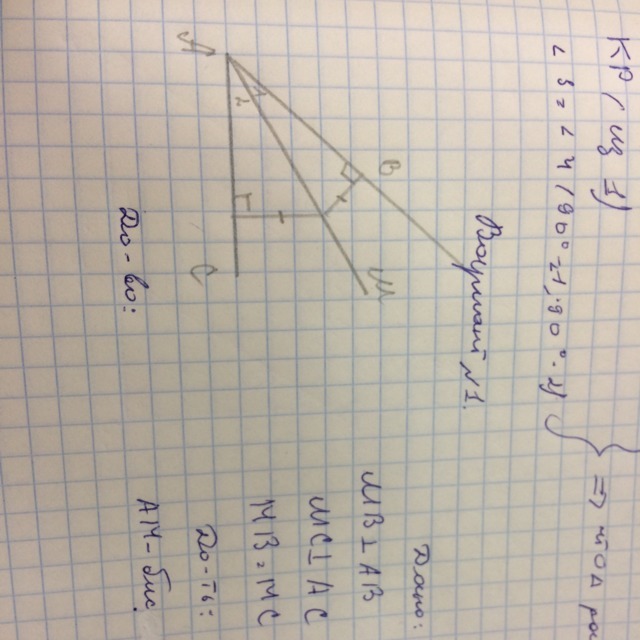 KP, из 1)
∠3 = ∠4 (90°-∠1, 90°-∠2)
} => ЧТОД
Вариант №1.
Дано:
MB ⊥ AB
MC ⊥ AC
MB = MC
До-ть:
AM - бис.
A
B
M
C
1
2
До-во: